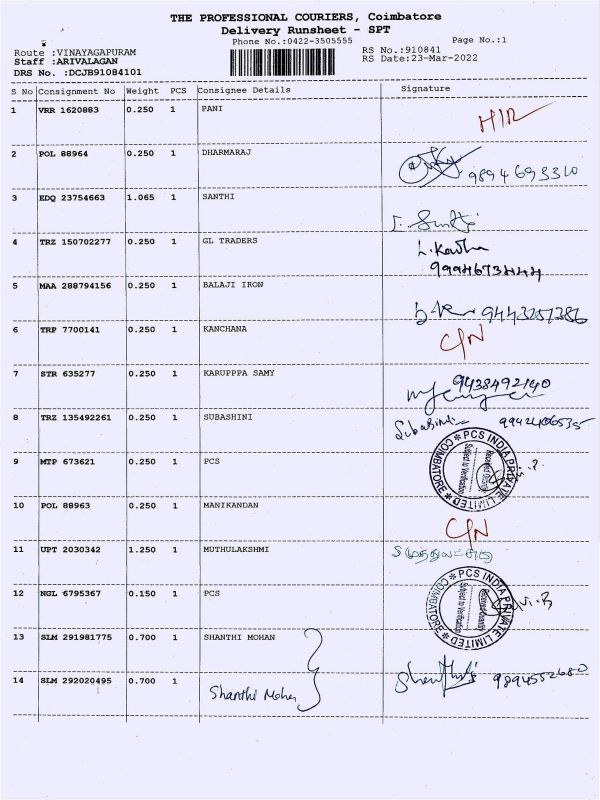 THE PROFESSIONAL COURIERS, Coimbatore
Delivery Runsheet - SPT
Phone No.:0422-3505555 Page No.:1
Route :VINAYAGAPURAM RS No.:910841
Staff :ARIVALAGAN RS Date:23-Mar-2022
DRS No. :DCJB91084101
S No Consignment No Weight PCS Consignee Details Signature
1 VRR 1620883 0.250 1 PANI
2 POL 88964 0.250 1 DHARMARAJ 9894693310
3 EDQ 23754663 1.065 1 SANTHI
4 TRZ 150702277 0.250 1 GL TRADERS
5 MAA 288794156 0.250 1 BALAJI IRON
6 TRP 7700141 0.250 1 KANCHANA C/N
7 STR 635277 0.250 1 KARUPPPA SAMY 9438492140
8 TRZ 135492261 0.250 1 SUBASHINI Subashini
9 MTP 673621 0.250 1 PCS PCS INDIA PRIVATE LIMITED COIMBATORE
10 POL 88963 0.250 1 MANIKANDAN C/N
11 UPT 2030342 1.250 1 MUTHULAKSHMI
12 NGL 6795367 0.150 1 PCS PCS INDIA PRIVATE LIMITED COIMBATORE
13 SLM 291981775 0.700 1 SHANTHI MOHAN
14 SLM 292020495 0.700 1 Shanthi Mohan 9894552680